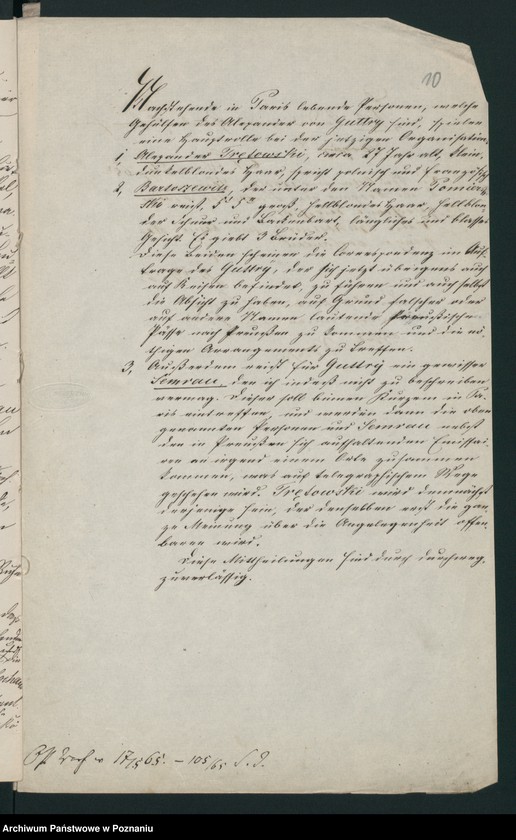 10
Nachstehende in Paris lebende Personen, welche
Gehülfen des Alexander von Guttry sind, spielen
eine Hauptrolle bei der jetzigen Organisation.
1, Alexander Trętowski, circa 37 Jahr alt, klein,
dunkelblondes Haar, spricht polnisch und französisch
2, Bartoszewitz, der unter dem Namen Tomic
ski reist, 5' 5" groß, hellblondes Haar, hellblon
der Schnur- und Backenbart, längliches und blasses
Gesicht. Es giebt 3 Brüder.
Diese Beiden scheinen die Correspondenz im Auf
trage des Guttry, der sich jetzt übrigens auch
auf Reisen befindet, zu führen und auch selbst
die Absicht zu haben, auf Grund falscher oder
auf andere Namen lautende Preußische
Pässe nach Preußen zu kommen und die nö
thigen Arrangements zu treffen.
3, Außerdem reist für Guttry ein gewisser
Semrau, den ich indeß nicht zu beschreiben
vermag. Dieser soll binnen Kurzem in Pa
ris eintreffen, und werden dann die oben
genannten Personen und Semrau nebst
den in Preußen sich aufhaltenden Emissai
ren an irgend einem Orte zusammen
kommen, was auf telegraphischem Wege
geschehen wird. Trętowski wird demnächst
derjenige sein, der denselben erst die gan
ze Meinung über die Angelegenheit offen
baren wird.
Diese Mittheilungen sind durch durchweg
zuverlässig.
17/5 65. – 105/65
Archiwum Państwowe w Poznaniu